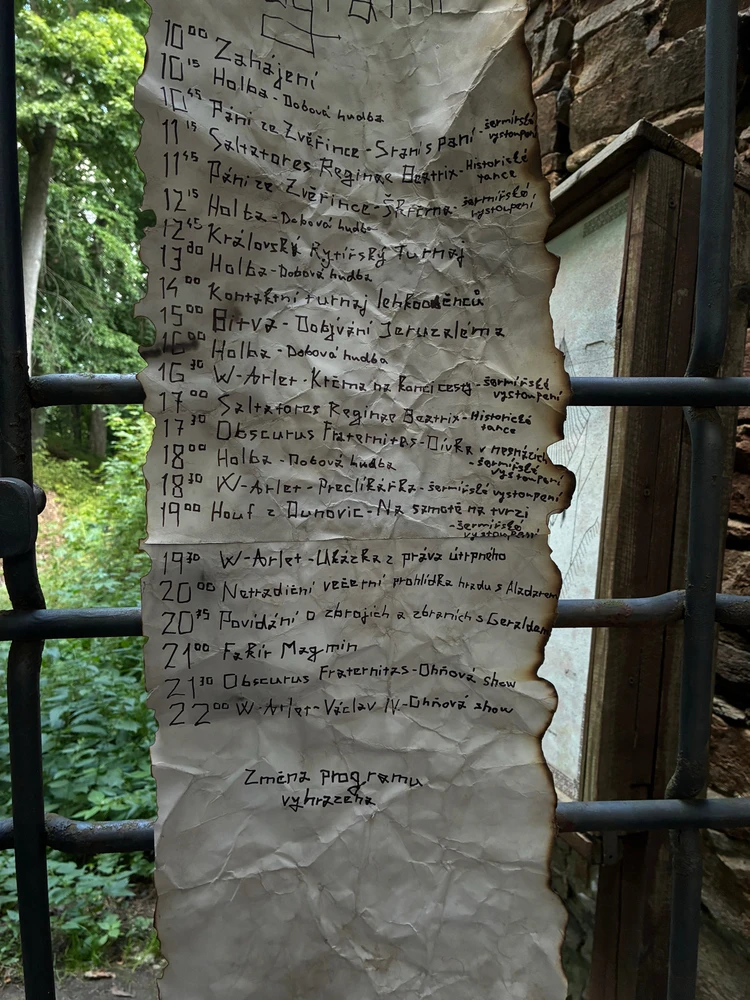 10⁰⁰ Zahájení
10¹⁵ Holba - Dobová hudba
10⁴⁵ Páni ze Zvěřince - Sranis paní - šermířské
vystoupení
11¹⁵ Saltatores Reginae Beatrix - Historické
tance
11⁴⁵ Páni ze Zvěřince - - šermířské
vystoupení
12¹⁵ Holba - Dobová hudba
12⁴⁵ Královský Rytířský Turnaj
13³⁰ Holba - Dobová hudba
14⁰⁰ Kontaktní turnaj lehkooděnců
15⁰⁰ Bitva - Dobývání Jeruzaléma
16⁰⁰ Holba - Dobová hudba
16³⁰ W-Arlet - Krčma na konci cesty - šermířské
vystoupení
17⁰⁰ Saltatores Reginae Beatrix - Historické
tance
17³⁰ Obscurus Fraternitas - Dívka v nesnázích
- šermířské
vystoupení
18⁰⁰ Holba - Dobová hudba
18³⁰ W-Arlet - Preclíkářka - šermířské vystoupení
19⁰⁰ Houf z Dunovic - Na samotě na tvrzi
- šermířské
vystoupení
19³⁰ W-Arlet - Ukázka z práva útrpného
20⁰⁰ Netradiční večerní prohlídka hradu s Aladarem
20⁴⁵ Povídání o zbrojích a zbraních s Geraldem
21⁰⁰ Fakír Magmin
21³⁰ Obscurus Fraternitas - Ohňová show
22⁰⁰ W-Arlet - Václav IV - Ohňová show
Změna programu
vyhrazena